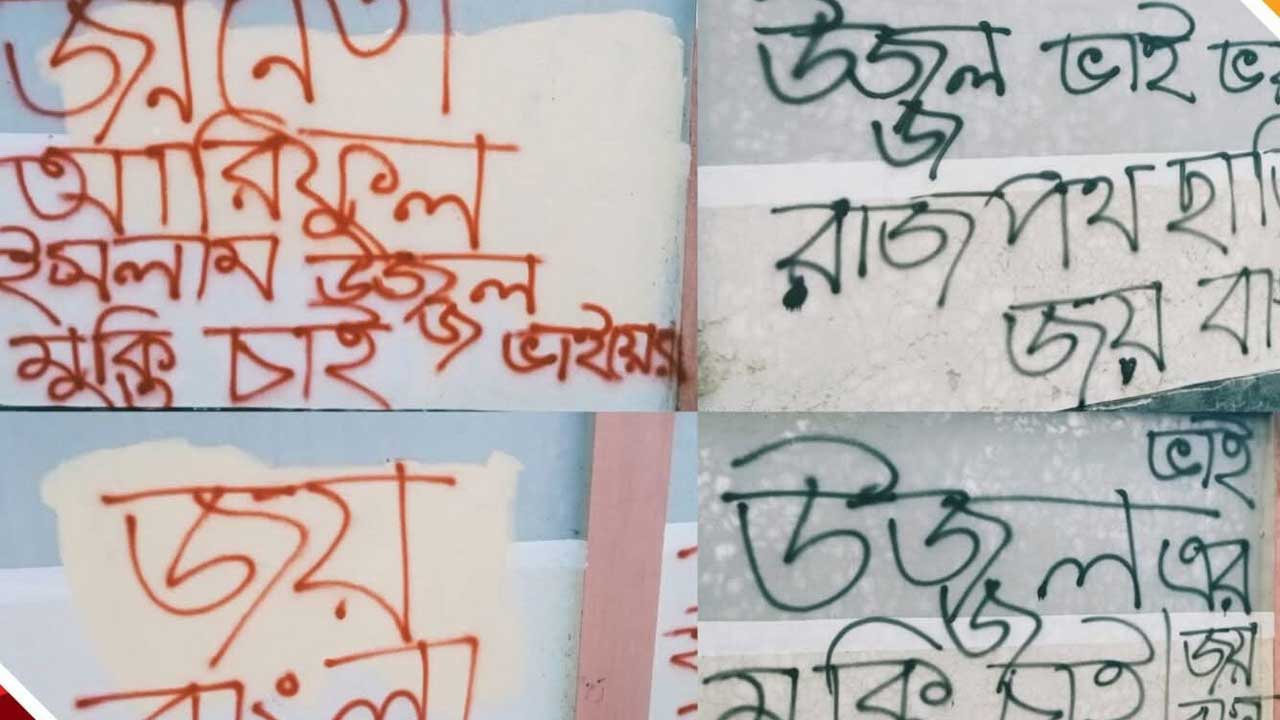 জননেতা
আরিফুল
ইসলাম উজ্জ্বল
মুক্তি চাই ভাইয়ের
উজ্জল ভাই
রাজপথ
জয়
জয়
বাংলা
ভাই
উজ্জল এর
মুক্তি চাই
জয়